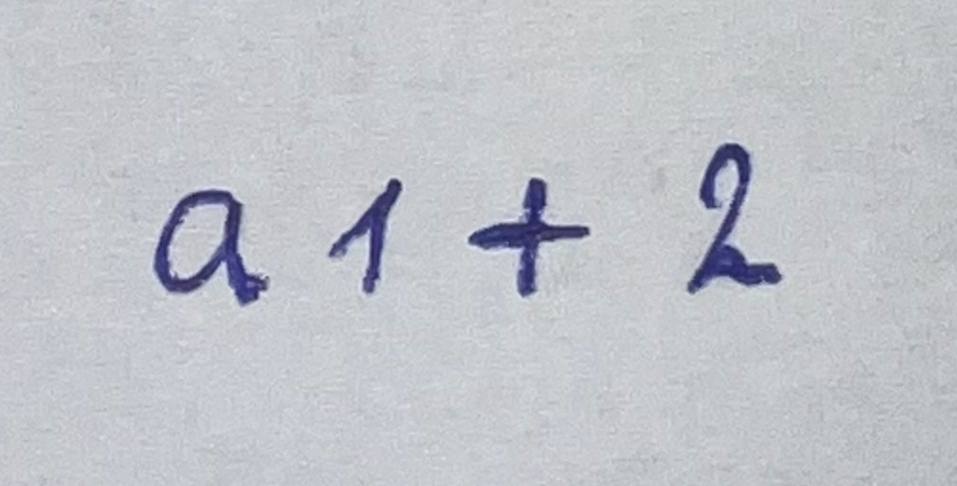 a 1 + 2